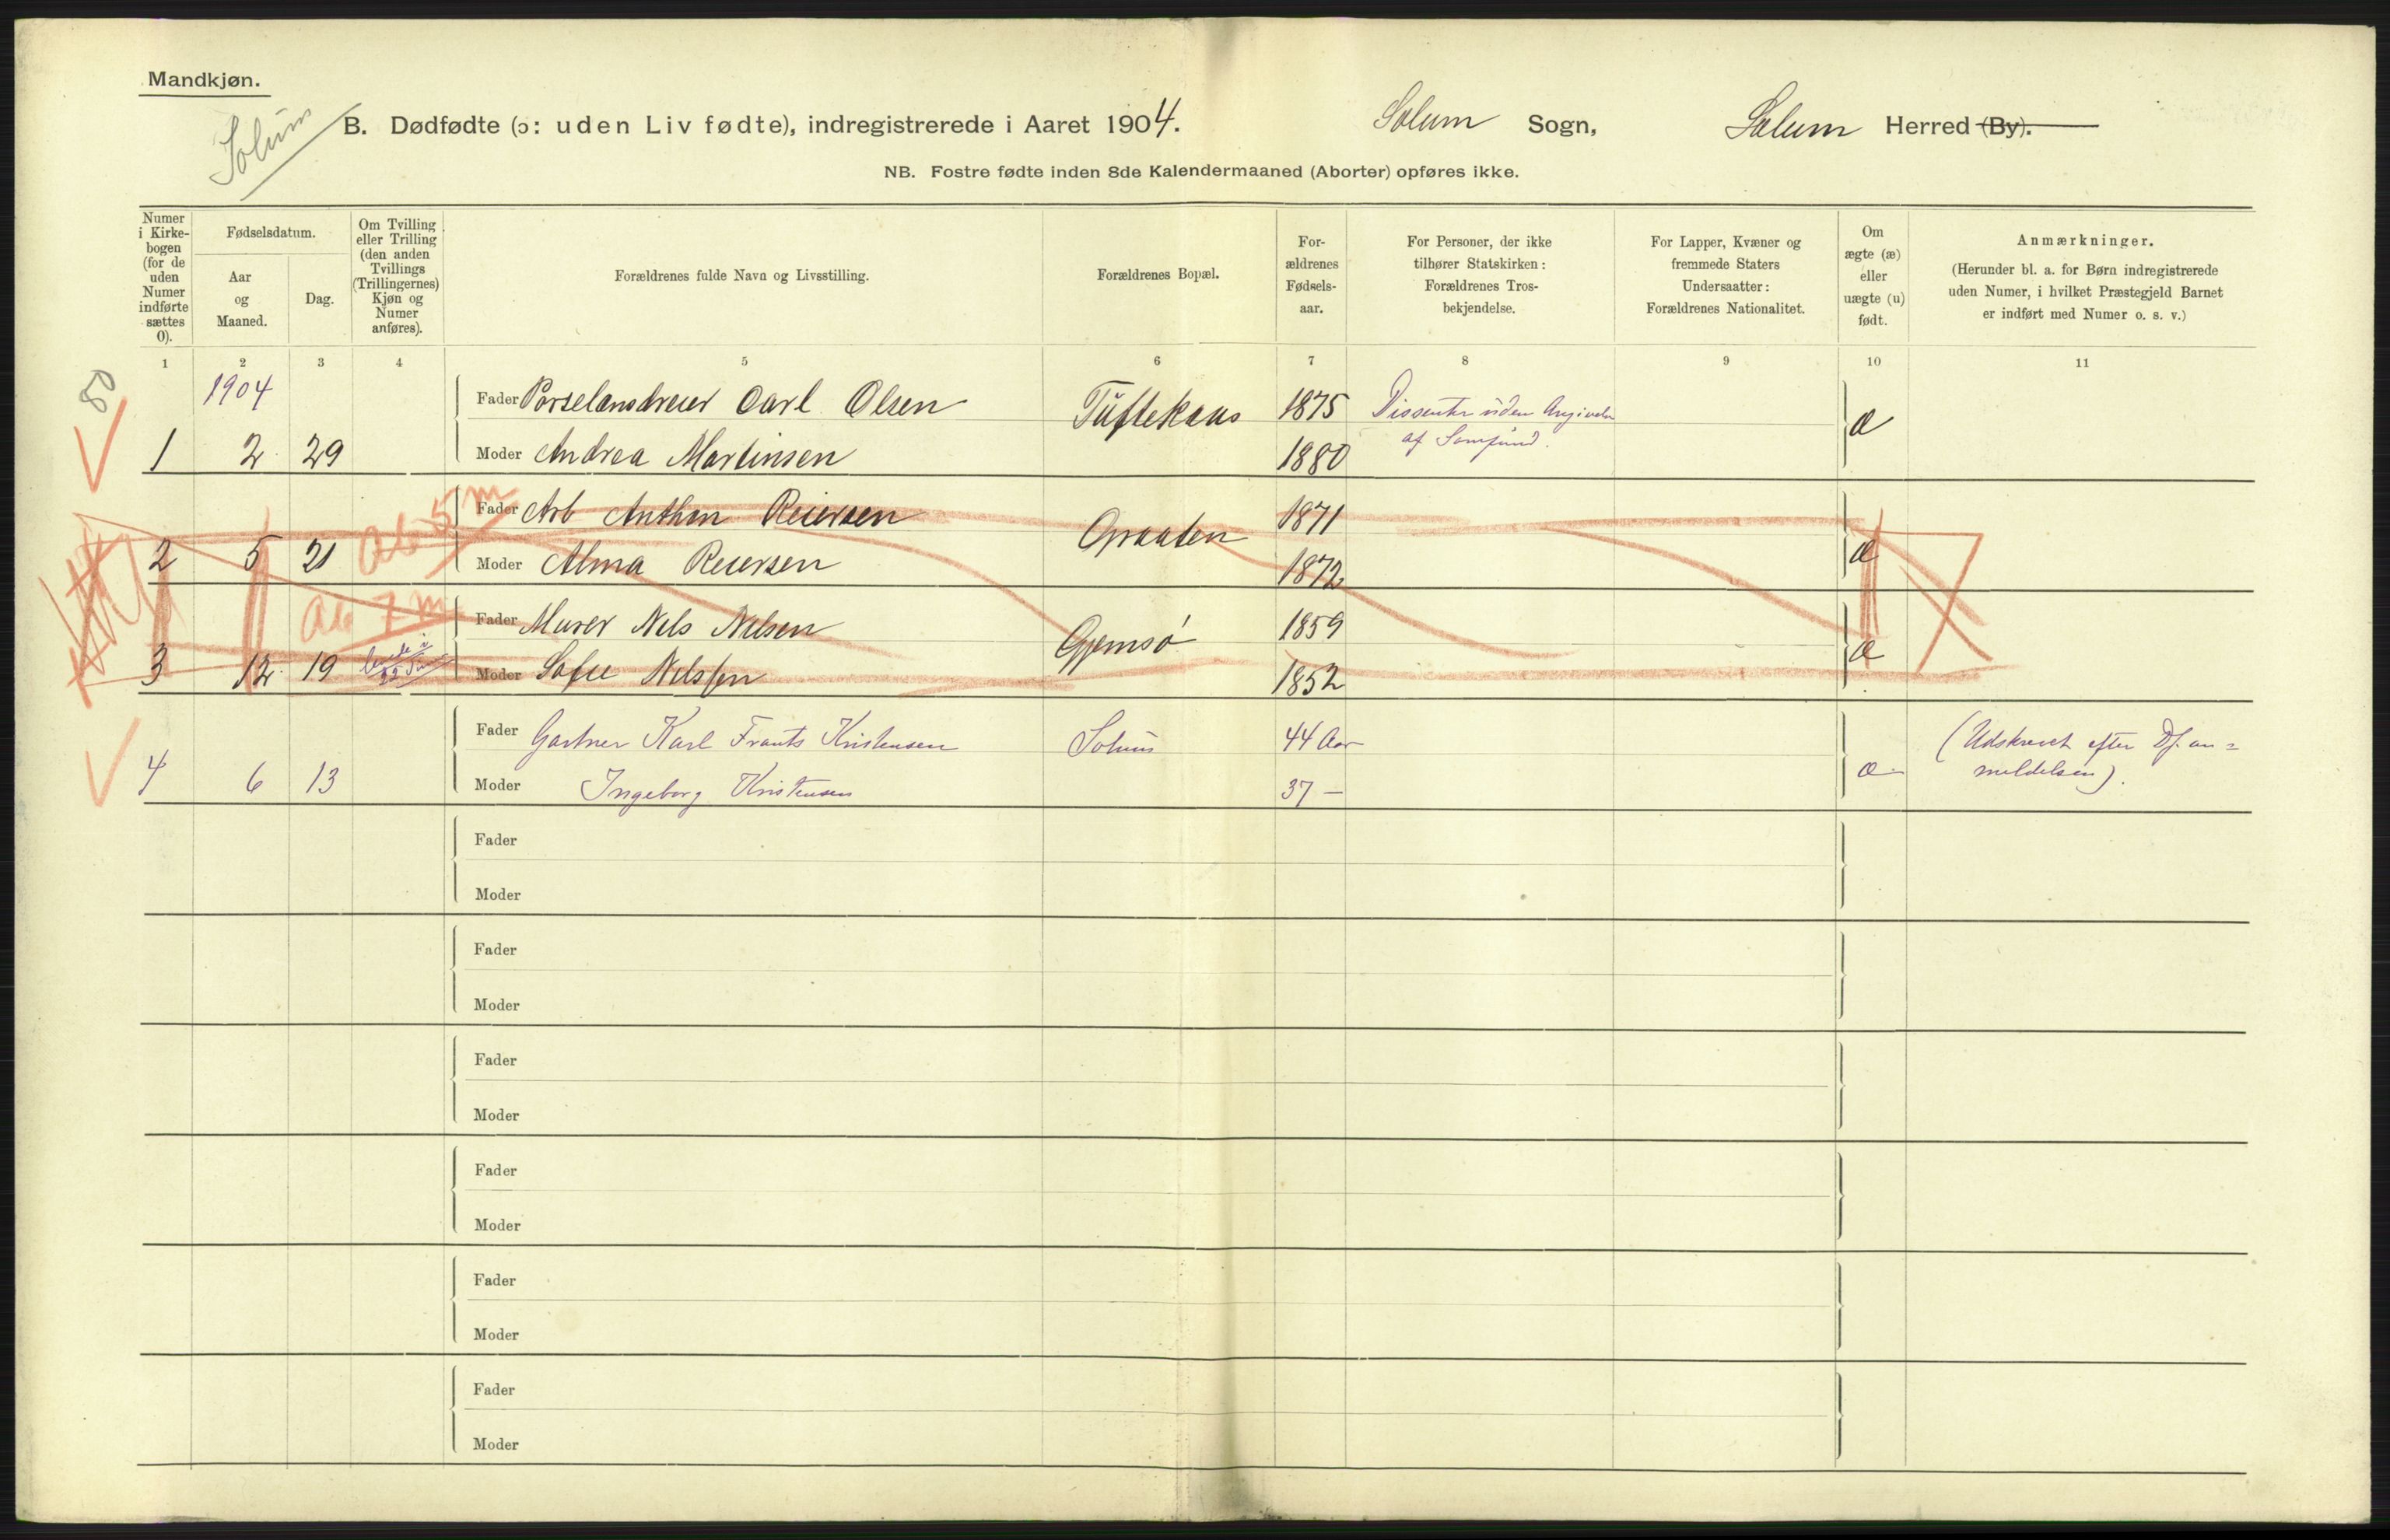 Mandkjøn.
Solum
B. Dødfødte (ɔ: uden Liv fødte), indregistrerede i Aaret 1904. Solum Sogn, Solum Herred (By).
NB. Fostre fødte inden 8de Kalendermaaned (Aborter) opføres ikke.
Numer
i Kirke-
bogen
(for de
uden
Numer
indførte
sættes
0).
Fødselsdatum.
Aar
og
Maaned.
Dag.
Om Tvilling
eller Trilling
(den anden
Tvillings
(Trillingernes)
Kjøn og
Numer
anføres).
Forældrenes fulde Navn og Livsstilling.
Forældrenes Bopæl.
For-
ældrenes
Fødsels-
aar.
For Personer, der ikke
tilhører Statskirken:
Forældrenes Tros-
bekjendelse.
For Lapper, Kvæner og
fremmede Staters
Undersaatter:
Forældrenes Nationalitet.
Om
ægte (æ)
eller
uægte (u)
født.
Anmærkninger.
(Herunder bl. a. for Børn indregistrerede
uden Numer, i hvilket Præstegjeld Barnet
er indført med Numer o. s. v.)
1 2 3 4 5 6 7 8 9 10 11
1904
Fader Porselænsdreier Carl Olsen Tuftekaas 1875 Dissenter uden Angivelse
af Samfund.
1 2 29 Moder Andrea Martinsen 1880 æ
Ab 5 m
Fader Arb Anthon Reiersen Graaten 1871
2 5 21 Moder Alma Reiersen 1872 æ
Ab 7 m
Fader Murer Nels Nelsen Gjemsø 1859
3 12 19 levede i
Moder Sofie Nelsen 1852 æ
Fader Gartner Karl Frants Kristensen Solum 44 Aar (Udskrevet efter Df. an=
meldelsen).
4 6 13 Moder Ingeborg Kristensen 37 — æ
Fader
Moder
Fader
Moder
Fader
Moder
Fader
Moder
Fader
Moder
Fader
Moder